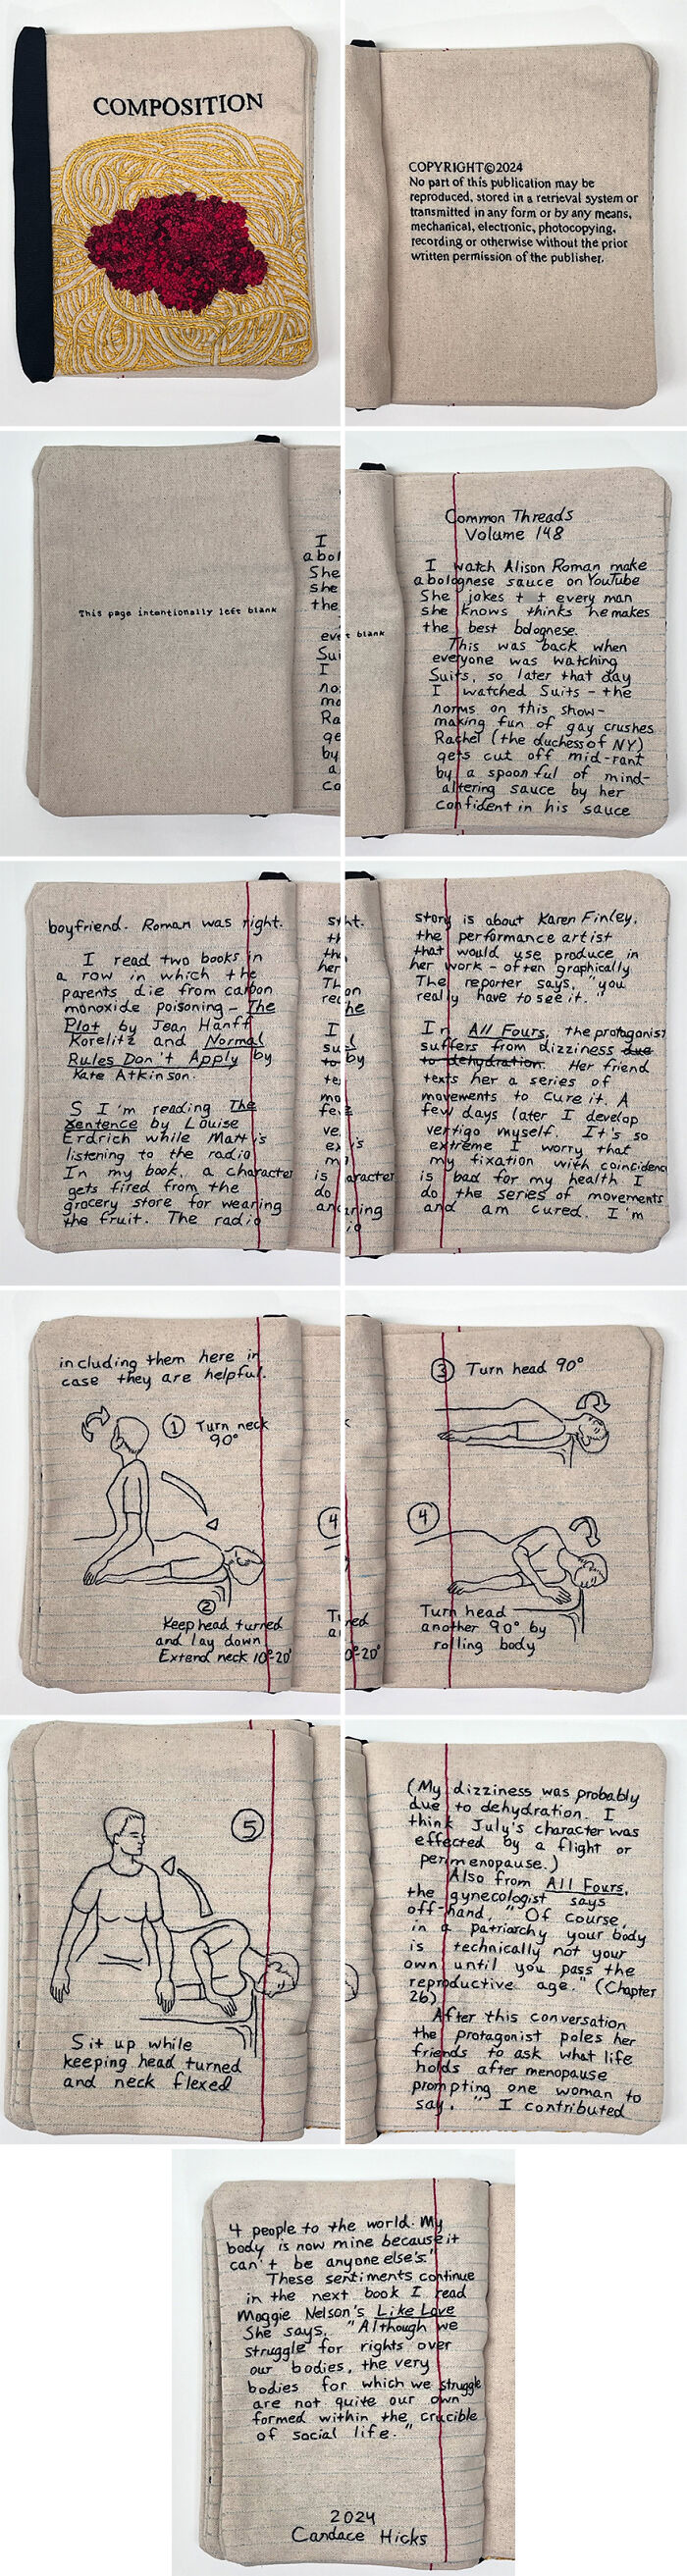 COMPOSITION
COPYRIGHT©2024
No part of this publication may be
reproduced, stored in a retrieval system or
transmitted in any form or by any means,
mechanical, electronic, photocopying,
recording or otherwise without the prior
written permission of the publisher.
This page intentionally left blank
Common Threads
Volume 148
I watch Alison Roman make
a bolognese sauce on YouTube
She jokes t t every man
she knows thinks he makes
the best bolognese.
This was back when
everyone was watching
Suits, so later that day
I watched Suits - the
norms on this show-
making fun of gay crushes
Rachel (the duchess of NY)
gets cut off mid-rant
by a spoon ful of mind-
altering sauce by her
confident in his sauce
boyfriend. Roman was right.
I read two books in
a row in which the
parents die from carbon
monoxide poisoning - The
Plot by Jean Hanff
Korelitz and Normal
Rules Don't Apply by
Kate Atkinson.
S I'm reading The
Sentence by Louise
Erdrich while Matt is
listening to the radio
In my book, a character
gets fired from the
grocery store for wearing
the fruit. The radio
story is about Karen Finley,
the performance artist
that would use produce in
her work - often graphically
The reporter says, "you
really have to see it."
In All Fours, the protagonist
suffers from dizziness due
to dehydration. Her friend
texts her a series of
movements to cure it. A
few days later I develop
vertigo myself. It's so
extreme I worry that
my fixation with coincidence
is bad for my health I
do the series of movements
and am cured. I'm
including them here in
case they are helpful.
1 Turn neck
90°
2
Keep head turned
and lay down
Extend neck 10°-20°
3 Turn head 90°
4
Turn head
another 90° by
rolling body
5
Sit up while
keeping head turned
and neck flexed
(My dizziness was probably
due to dehydration. I
think July's character was
effected by a flight or
perimenopause.)
Also from All Fours,
the gynecologist says
off-hand, "Of course,
in a patriarchy your body
is technically not your
own until you pass the
reproductive age." (Chapter
26)
After this conversation
the protagonist poles her
friends to ask what life
holds after menopause
prompting one woman to
say, " I contributed
4 people to the world. My
body is now mine because it
can't be anyone else's."
These sentiments continue
in the next book I read
Maggie Nelson's Like Love
She says, "Although we
struggle for rights over
our bodies, the very
bodies for which we struggle
are not quite our own
formed within the crucible
of social life."
2024
Candace Hicks